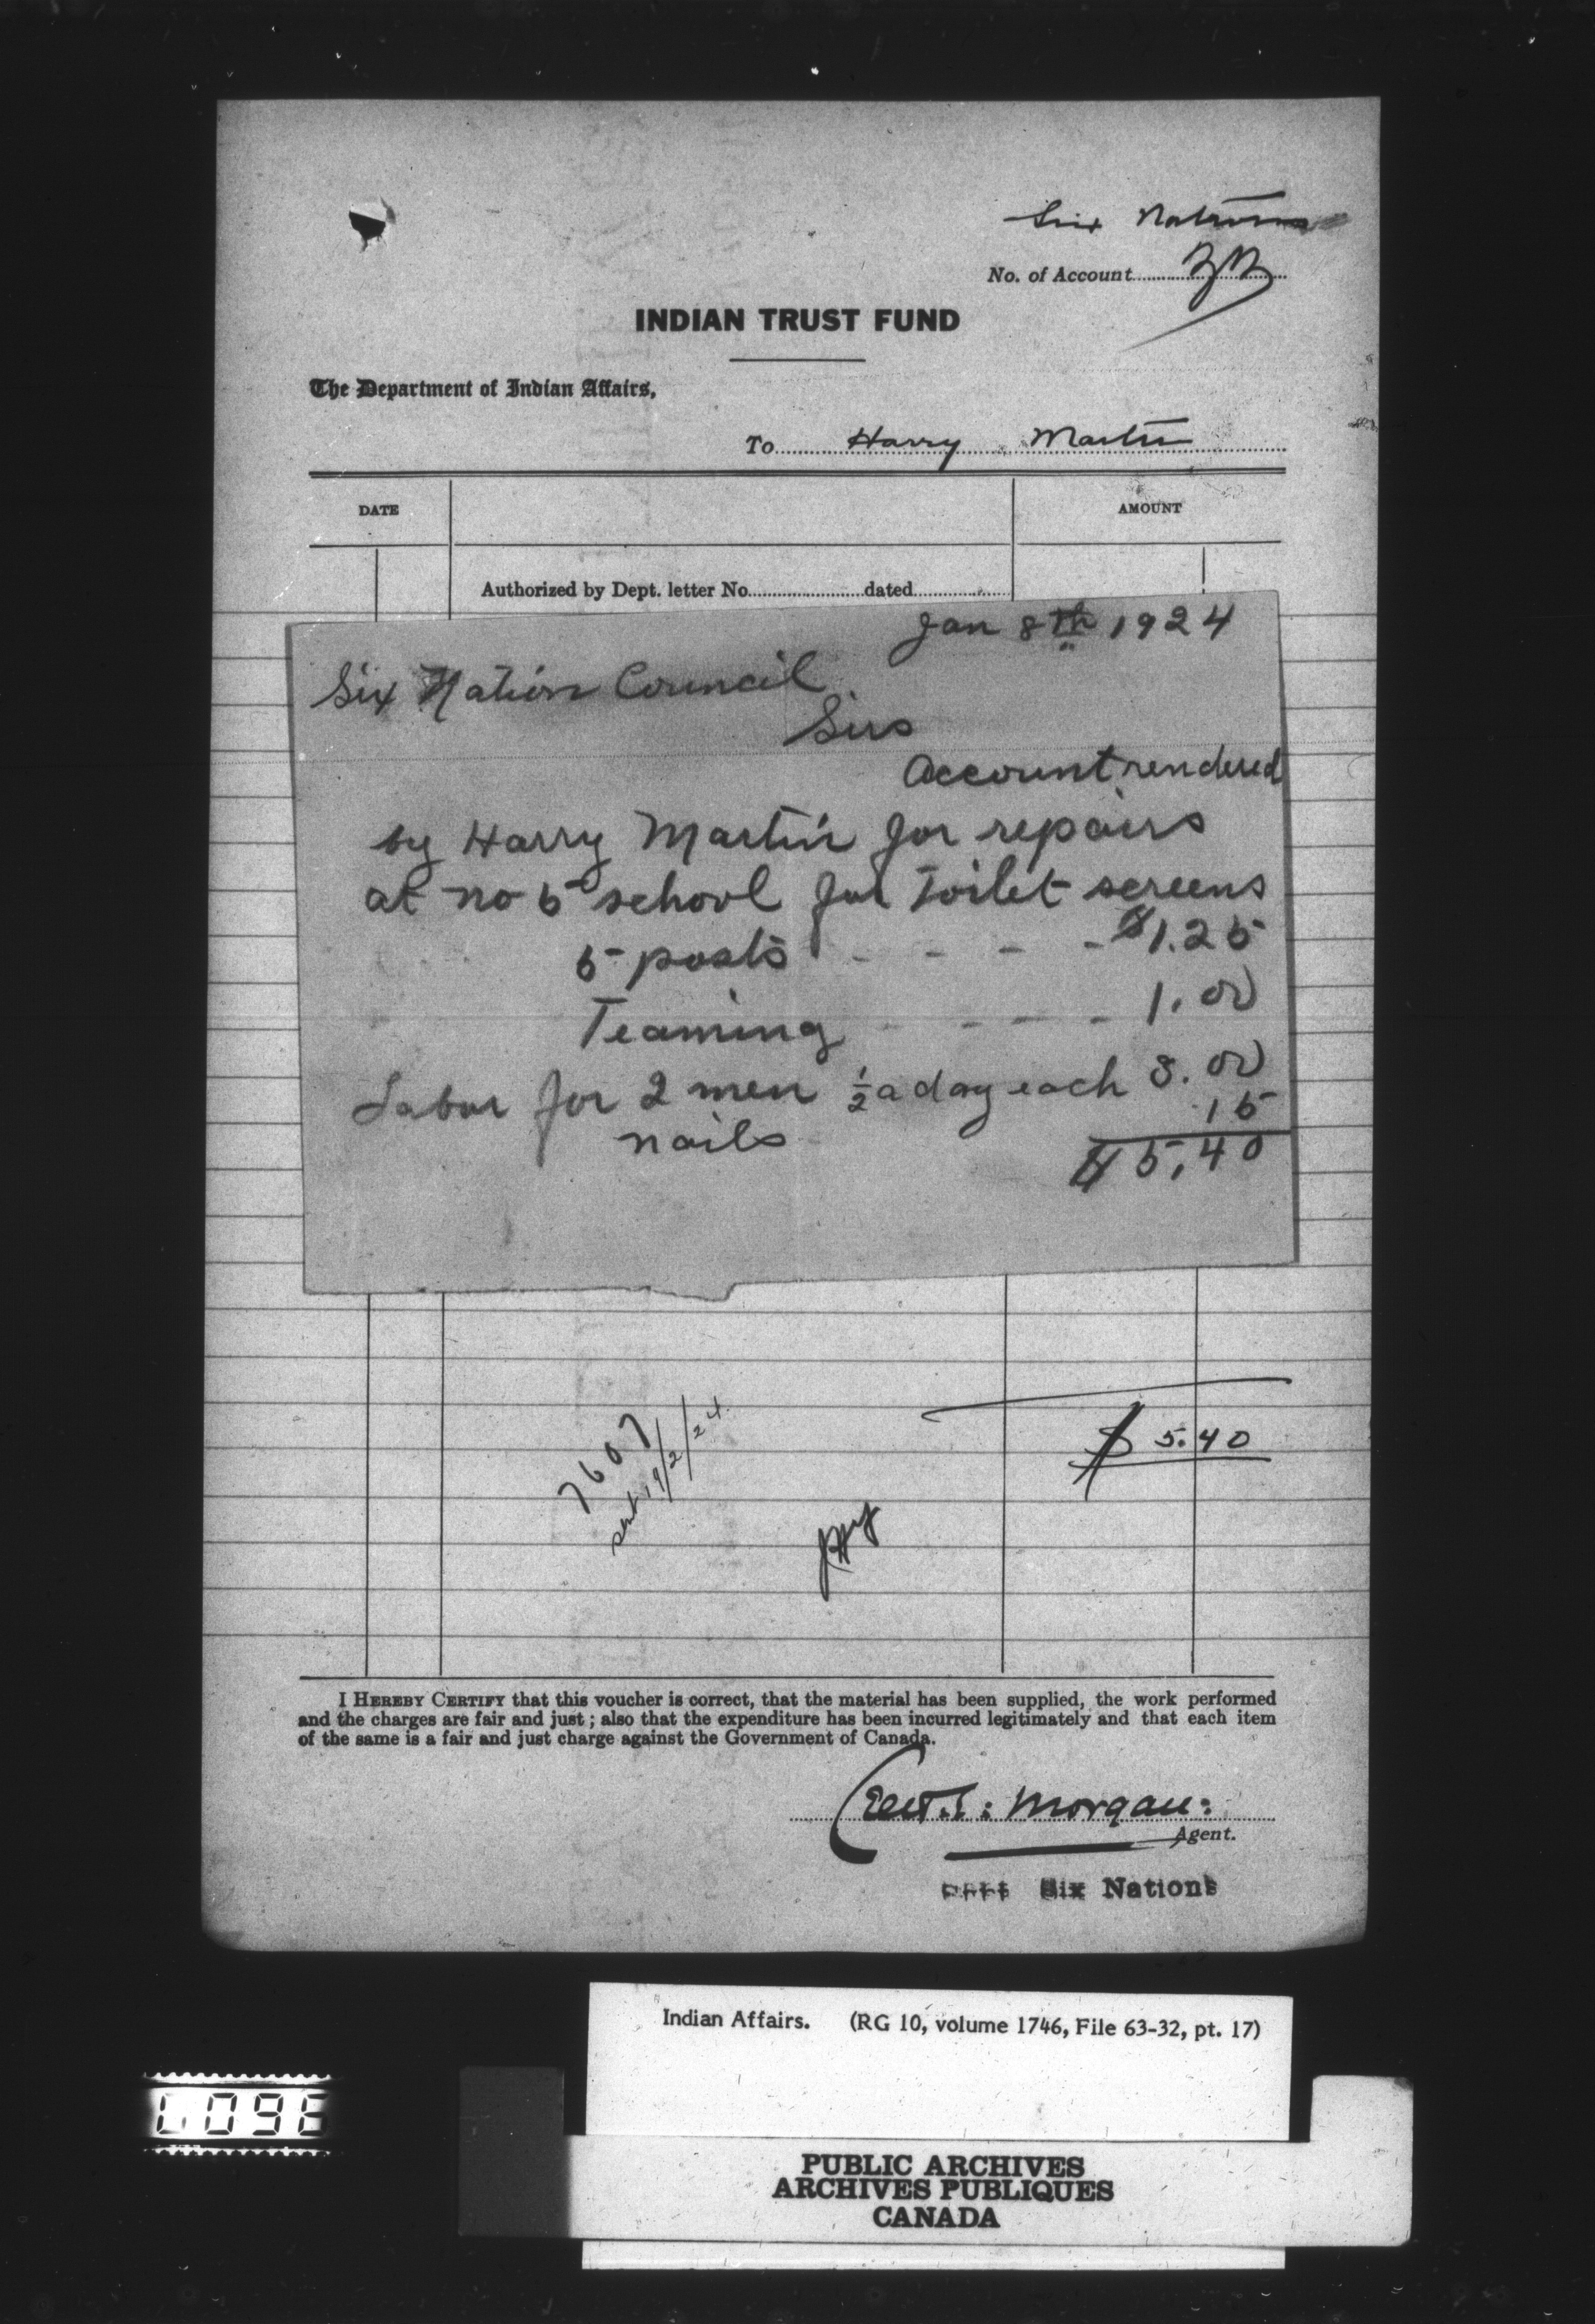 Six Nations
No. of Account
INDIAN TRUST FUND
The Department of Indian Affairs,
To Harry Martin
DATE
AMOUNT
Authorized by Dept. letter No. dated
Jan 8th 1924
Six Nation Council
Sirs
Account rendered
by Harry Martin for repairs
at no 5 school for Toilet screens
5 posts - - - - $1.25
Teaming - - - - 1.00
Labor for 2 men ½ a day each 3.00
nails .15
$5.40
7607
sent 19/2/24
$ 5.40
I HEREBY CERTIFY that this voucher is correct, that the material has been supplied, the work performed
and the charges are fair and just; also that the expenditure has been incurred legitimately and that each item
of the same is a fair and just charge against the Government of Canada.
Morgan
Agent.
Six Nations
Indian Affairs. (RG 10, volume 1746, File 63-32, pt. 17)
PUBLIC ARCHIVES
ARCHIVES PUBLIQUES
CANADA